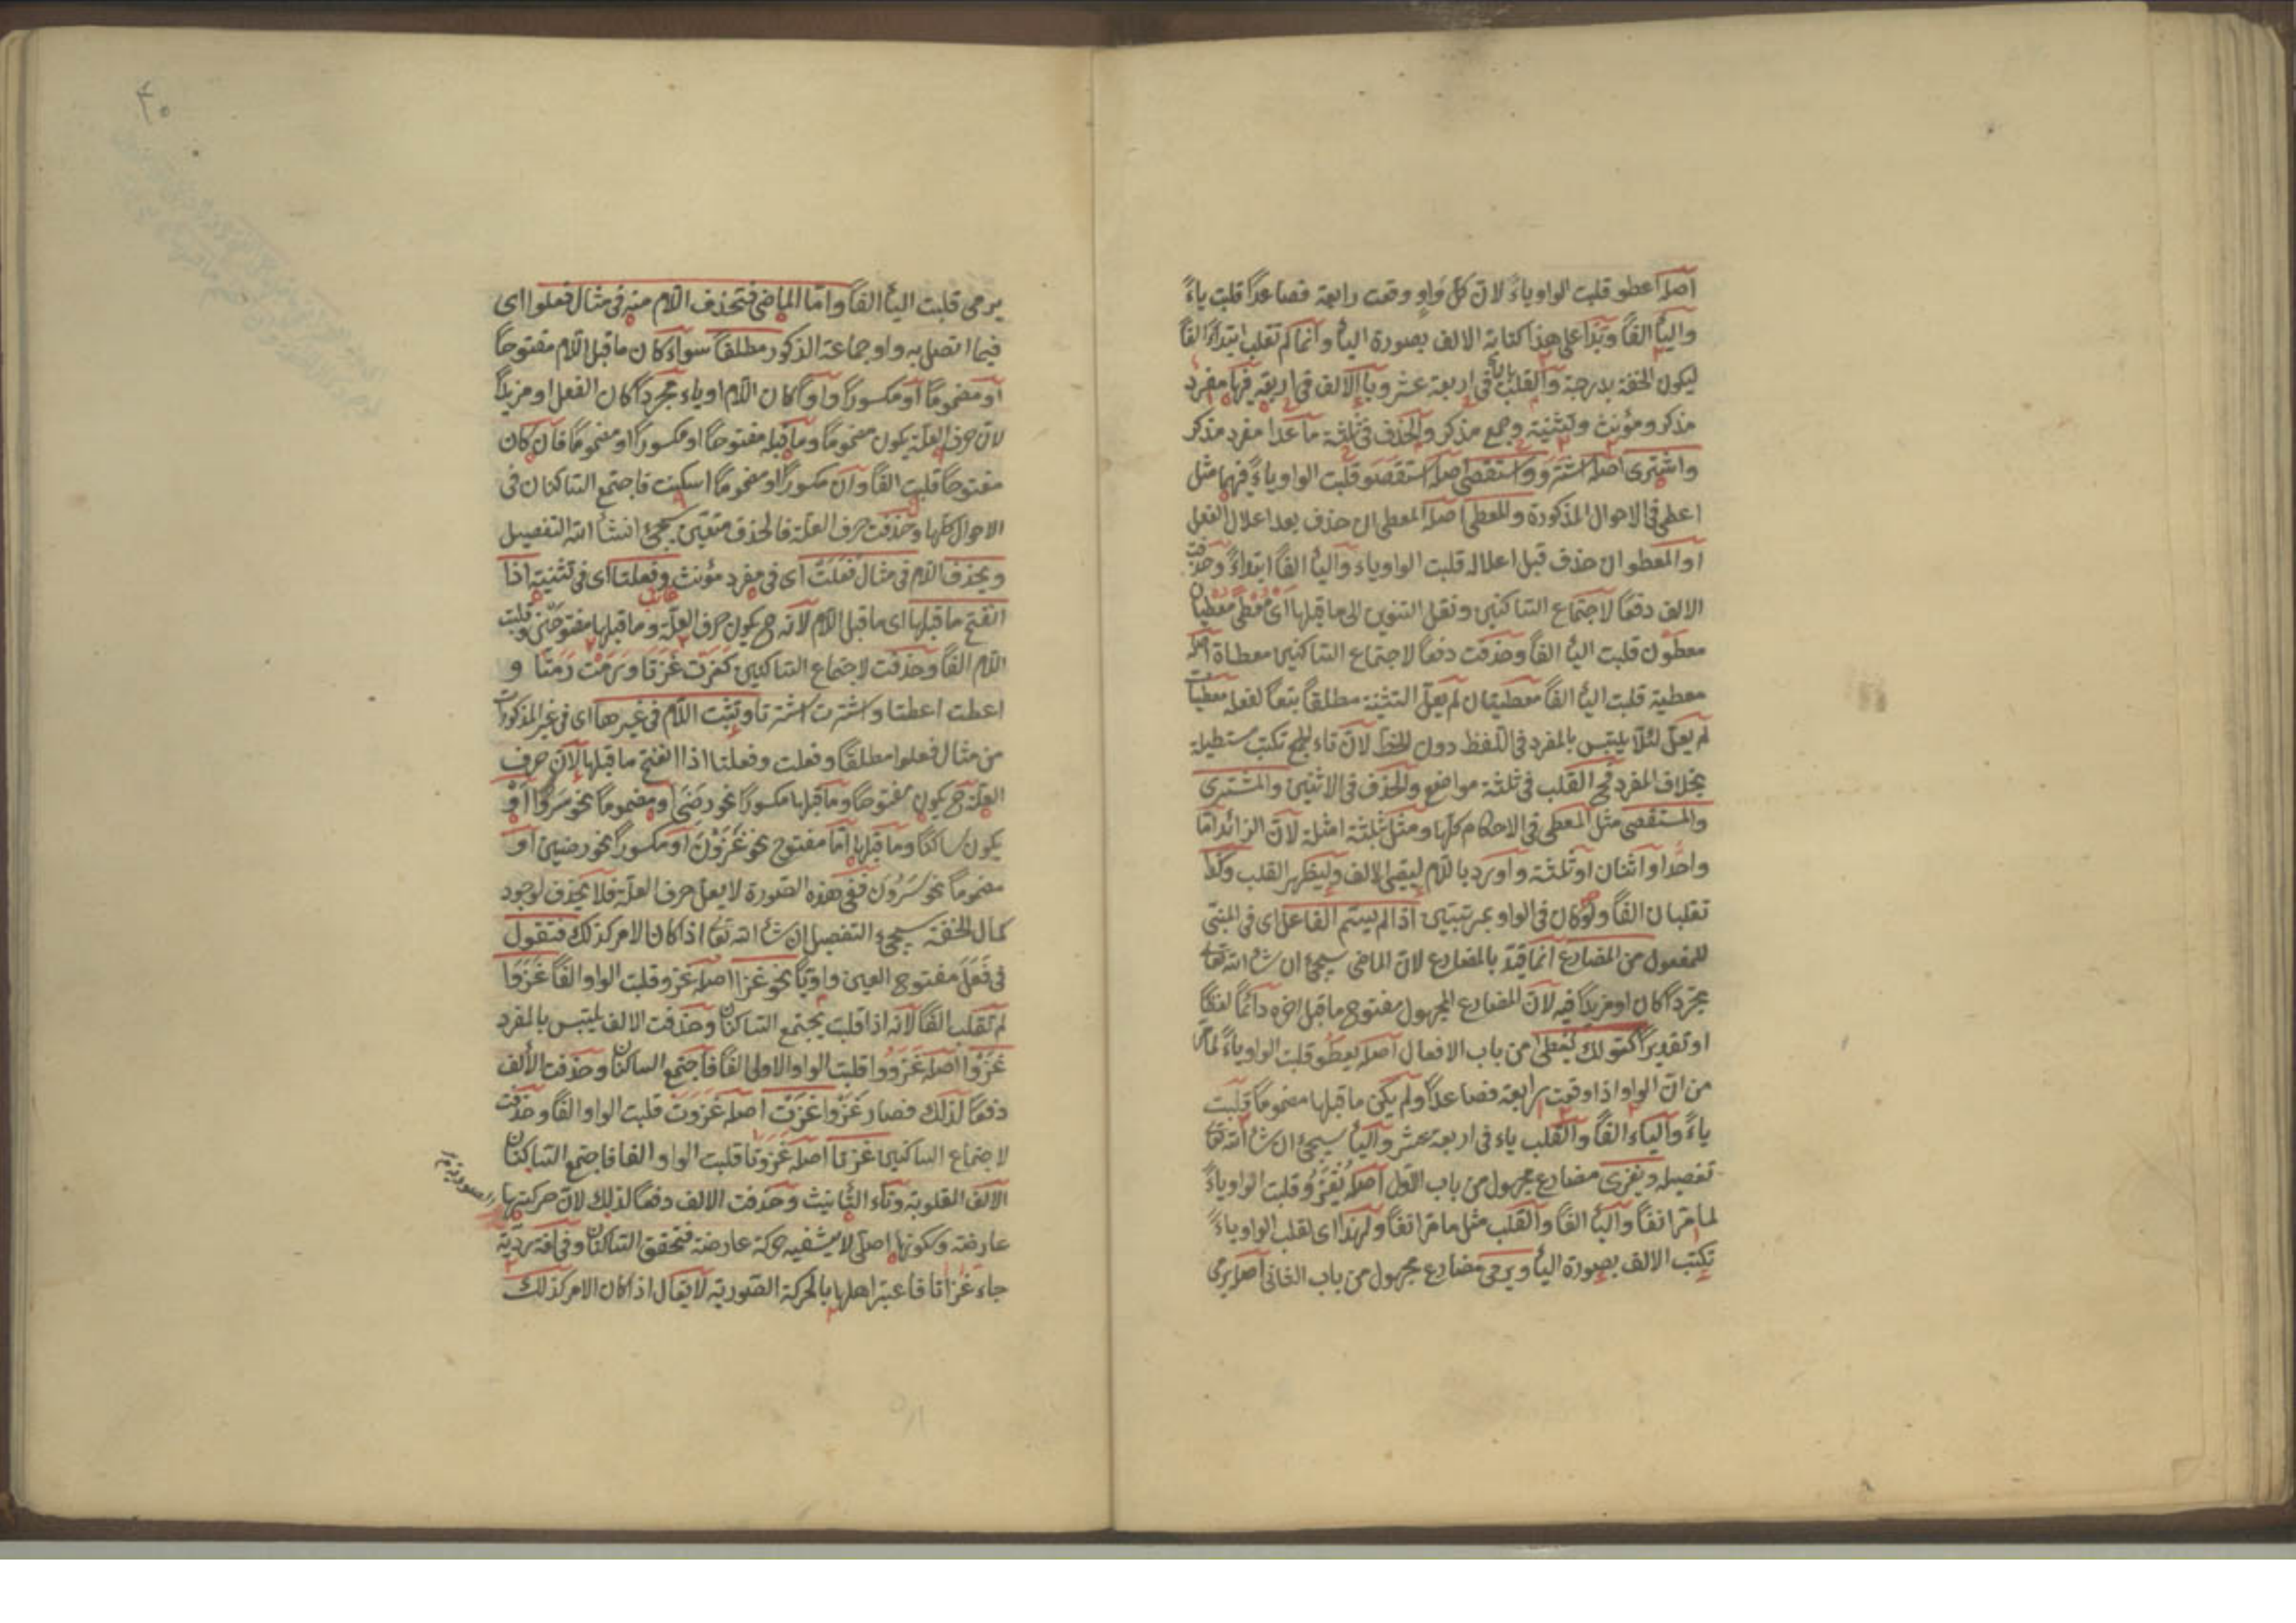 اصله اعطو قلبت الواو ياءً لانّ كلّ واوٍ وقعت رابعة فصاعداً قلبت ياءً
والياُ الفاً وبناءً على هذا كتابة الالف بصورة الياُ وانما لم تقلب ابتداءً الفاً
ليكون الخفة بدرجة والقلب بالياُ فى اربعة عشر وبالالف فى اربعة فيها مفرد
مذكر ومؤنث وتثنية وجمع مذكر والحذف فى ثلثة ما عدا مفرد مذكر
واشترى اصله اشترو واستقصى اصله استقصو قلبت الواو ياءً فيهما مثل
اعطى فى الاحوال المذكورة والمعطى اصله المعطى ان حذف بعد اعلال الفعل
او المعطو ان حذف قبل اعلاله قلبت الواو ياء والياُ الفاً ابتداءً وحذفت
الالف دفعاً لاجتماع الساكنين ونقل التنوين الى ما قبلها اى معطى معطيان
معطون قلبت الياُ الفاً وحذفت دفعاً لاجتماع الساكنين معطاة اصله
معطية قلبت الياُ الفاً معطيتان لم يعلّ التثنية مطلقاً تبعاً لفعله معطيات
لم يعلّ لئلّا يلتبس بالمفرد فى اللفظ دون الخط لانّ تاء الجمع تكتب مستطيلة
بخلاف المفرد فح القلب فى ثلثة مواضع والحذف فى الاثنين والمشترى
والمستقصى مثل المعطى فى الاحكام كلّها ومثل بثلثة امثلة لانّ الزائد امّا
واحد او اثنان او ثلثة واورد باللام ليبقى الالف وليظهر القلب وكذا
تقلبان الفاً ولو كان فى الواو بمرتبتين اذا لم يسمّ الفاعل اى فى المبنى
للمفعول من المضارع انما قيّد بالمضارع لانّ الماضى سيجئ ان شاء الله تعا
مجرّداً كان او مزيداً فيه لانّ المضارع المجهول مفتوح ما قبل اخره دائماً لفظاً
او تقديراً كقولك يُعطى من باب الافعال اصله يعطو قلبت الواو ياءً لما مرّ
من انّ الواو اذا وقعت رابعة فصاعداً ولم يكن ما قبلها مضموماً قلبت
ياءً والياء الفاً والقلب ياء فى اربعة عشر والياُ سيجئ ان شاء الله تعا
تفصيله ويغزى مضارع مجهول من باب الاوّل اصله يُغْزَوُ قلبت الواو ياءً
لما مرّ انفاً والياُ الفاً والقلب مثل ما مرّ انفاً ولهذا اى لقلب الواو ياءً
تكتب الالف بصورة الياُ ويرمى مضارع مجهول من باب الثانى اصله يرمى
٤٠
يرمى قلبت الياُ الفاً وامّا الماضى فتحذف اللام منه فى مثال فعلوا اى
فيما اتصل به واو جماعة الذكور مطلقاً سواء كان ما قبل اللام مفتوحاً
او مضموماً او مكسوراً واواً كان اللام او ياء مجرّداً كان الفعل او مزيداً
لانّ حرف العلّة يكون مضموماً وما قبله مفتوحاً او مكسوراً او مضموماً فان كان
مفتوحاً قلبت الفاً وان مكسوراً او مضموماً اسكنت فاجتمع الساكنان فى
الاحوال كلّها وحذفت حرف العلّة فالحذف متعيّن سيجئ انشا الله التفصيل
ويحذف اللام فى مثال فَعَلَتْ اى فى مفرد مؤنث غائب وفعلتا اى فى تثنيته اذا
انفتح ما قبلها اى ما قبل اللام لانّه ح يكون حرف العلّة وما قبلها مفتوحتين وقلبت
اللام الفاً وحذفت لاجتماع الساكنين كغزت غزتا ورمت رمتا و
اعطت اعطتا واشترت اشترتا وتثبت اللام فى غيرها اى فى غير المذكورات
من مثال فعلوا مطلقاً وفعلت وفعلتا اذا انفتح ما قبلها لانّ حرف
العلّة ح يكون مفتوحاً وما قبلها مكسوراً نحو رضى او مضموماً نحو سَرُوَ او
يكون ساكناً وما قبلها امّا مفتوح نحو غَزَوْنَ او مكسوراً نحو رضين او
مضموماً نحو سَرُونَ ففى هذه الصورة لا يعلّ حرف العلّة فلا يحذف لوجود
كمال الخفّة سيجئ التفصيل ان شاء الله تعا اذا كان الامر كذلك فتقول
فى فَعَلَ مفتوح العين واويّاً نحو غزا اصله غزو قلبت الواو الفاً غَزَوَا
لم تقلب الفاً لانّه اذا قلبت يجتمع الساكنان وحذفت الالف يلتبس بالمفرد
غزوا اصله غَزَوُوا قلبت الواو الاولى الفاً فاجتمع الساكنان وحذفت الالف
دفعاً لذلك فصار غَزَوا غَزَتْ اصله غَزَوَتْ قلبت الواو الفاً وحذفت
لاجتماع الساكنين غزتا اصله غَزَوَتَا قلبت الواو الفا فاجتمع الساكنان
الالف المقلوبة وتاء التأنيث وحذفت الالف دفعاً لذلك لانّ حركتها
الصورية
عارضة وسكونها اصلى حركة عارضة فتحقق الساكنان وفى لغة رديّة
جاء غزاتا فاعتبر اهلها بالحركة الصوريّة لا يقال اذا كان الامر كذلك